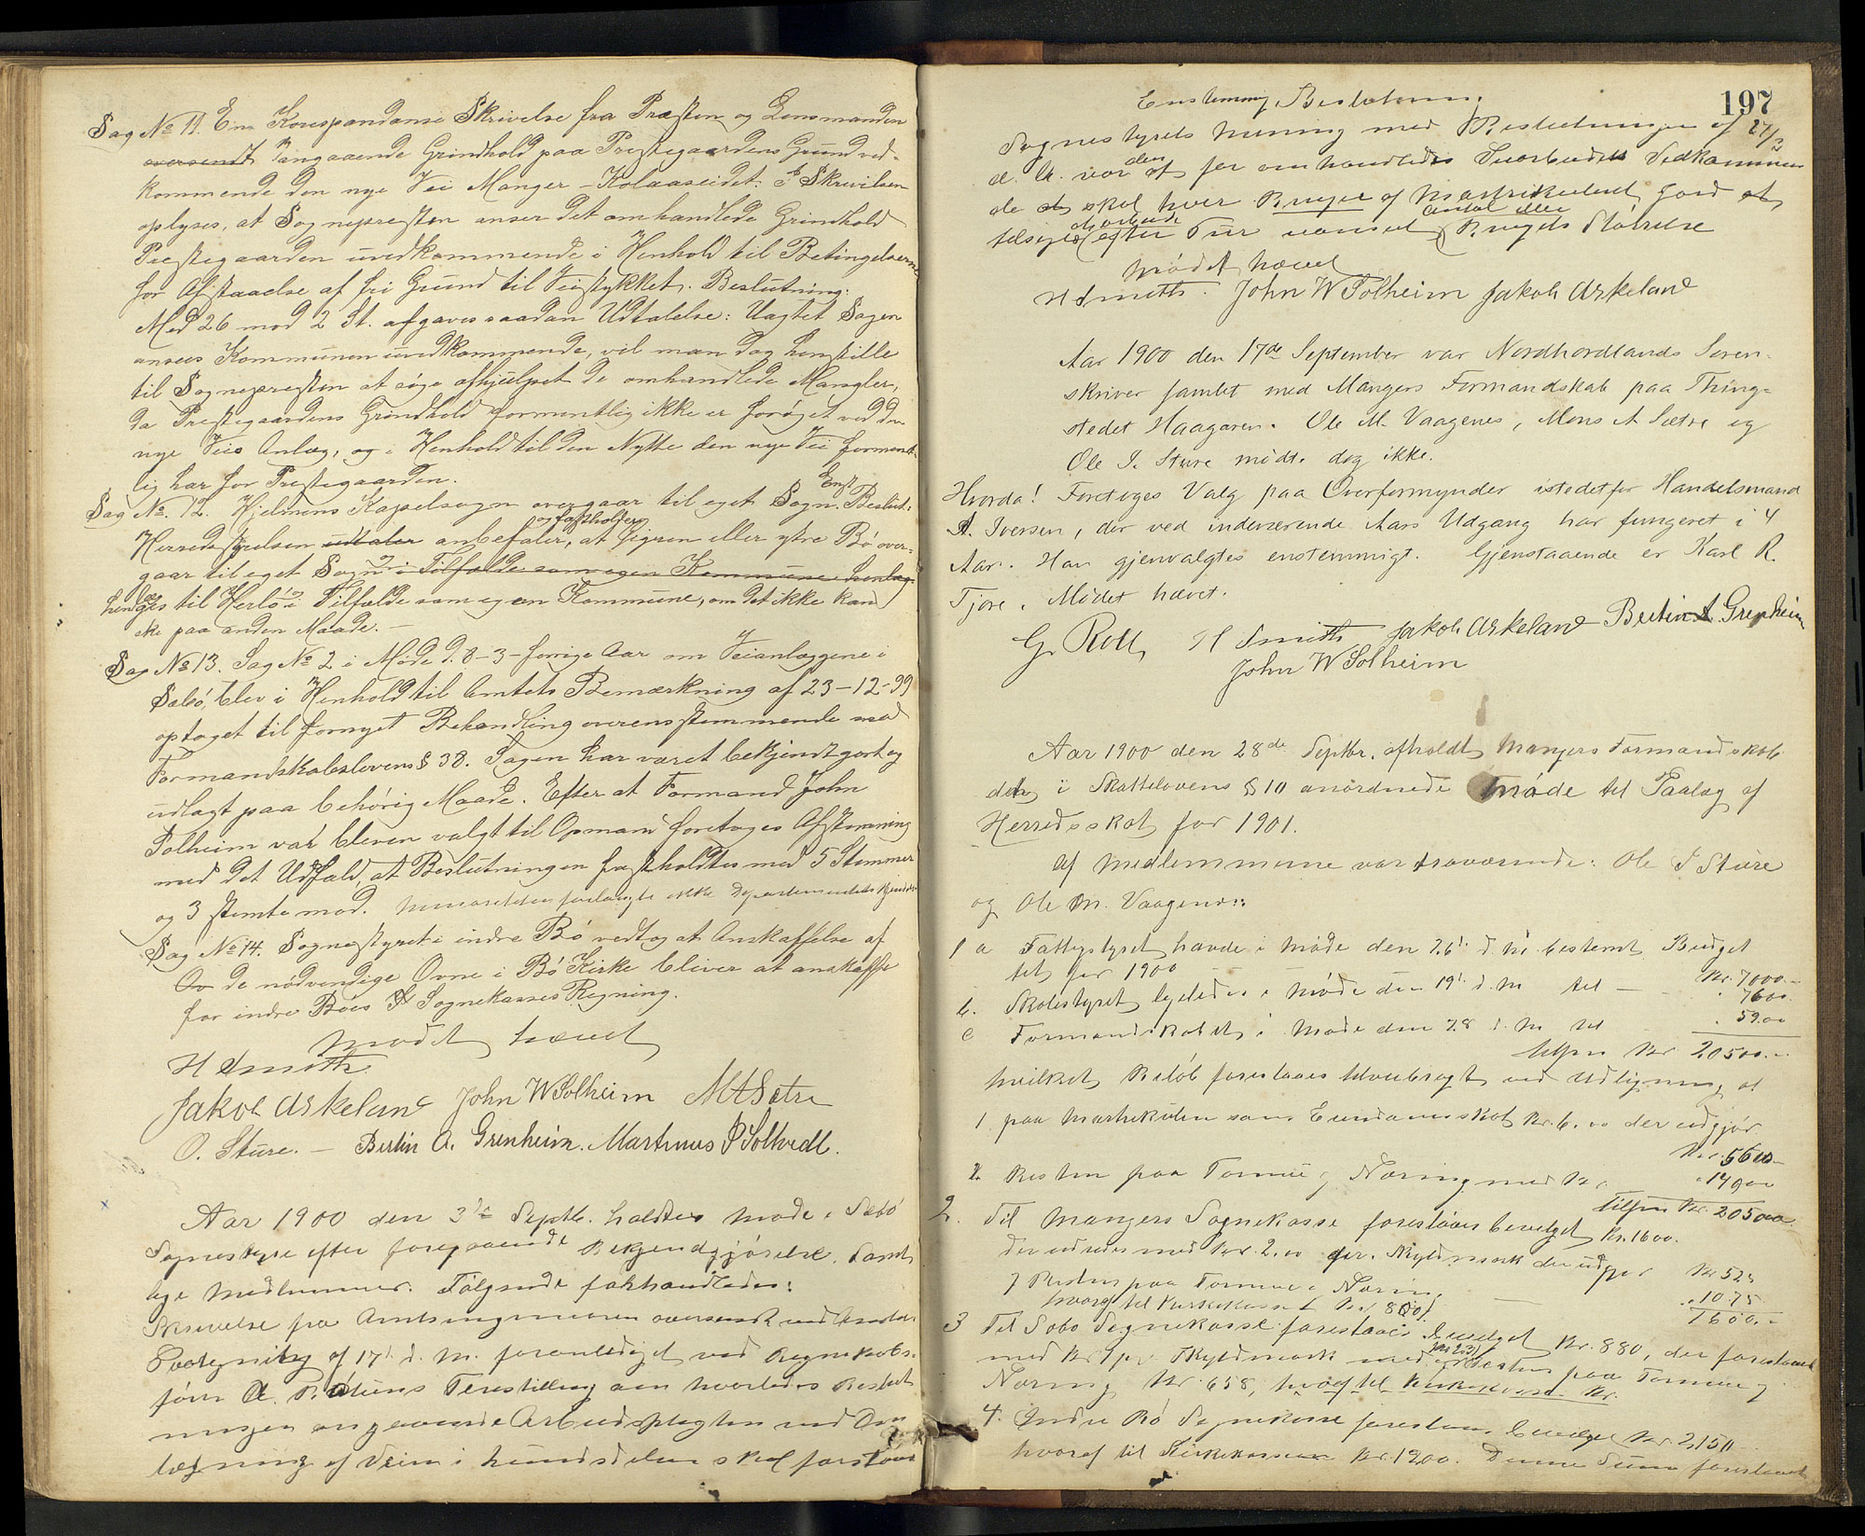 Sag No 11. En Korrespondanse Skrivelse fra Præsten og Lensmanden
oversendt angaaende Grindhold paa Prestegaardens Grund ved-
kommende den nye Vei Manger – Kolaaseidet. I Skrivelsen
oplyses, at Sognepresten anser det omhandlede Grindhold
Prestegaarden uvedkommende i Henhold til Betingelserne
for Afstaaelse af fri Grund til Veistykket. Beslutning:
Med 26 mod 2 St. afgaves saadan Udtalelse: Uagtet Sagen
ansees Kommunen uvedkommende, vil man dog henstille
til Sognepresten at søge afhjulpet de omhandlede Mangler,
da Prestegaardens Grindhold formentlig ikke er forøget ved den
nye Veis Anlæg, og i Henhold til den Nytte den nye Vei forment-
lig har for Prestegaarden.
Sag No. 12. Hjelmens Kapelsogn overgaar til eget Sogn. Enst. Beslut:
Herredsstyrelsen udtaler anbefaler, og fastholder at Lygren eller ytre Bø over-
gaar til eget Sogn og i Tilfælde som egen Kommune henlæg-
henlægges til Herlø i Tilfælde som egen Kommune, om det ikke kan
ske paa anden Maade. –
Sag No 13. Sag No 2 i Møde d. 8 – 3 – forrige Aar om Veianlæggene i
Sæbø, blev i Henhold til Amtets Bemærkning af 23 – 12 – 99
optaget til fornyet Behandling overensstemmende med
Formandskabslovens § 38. Sagen har været bekjendtgjort og
udlagt paa behørig Maade. Efter at Formand John
Solheim var bleven valgt til Opmand foretoges Afstemning
med det Udfald, at Beslutningen fastholdtes med 5 Stemmer
og 3 stemte mod. Minoriteten forlangte ikke Departementets Kjendelse
Sag No 14. Sognestyret i indre Bø vedtog at Anskaffelse af
Ov de nødvendige Ovne i Bø Kirke bliver at anskaffe
for indre Bøes Sognekasses Regning.
Mødet hævet
H Smith
Jakob Askeland John W Solheim M A Sætre
O. Sture. – Bertin A. Grenheim. Martinus P Soltvedt.
Aar 1900 den 3die Septb. holdtes Møde i Sæbø
Sognestyre efter foregaaende Bekjendtgjørelse. Samt
lige Medlemmer. Følgende forhandledes:
Skrivelse fra Amtsingeniøren oversendt ved Amtets
Paategning af 17d d. M. foranlediget ved Regnskabs-
fører A. P. Stures Forestilling om hvorledes Beslut
ningen angaaende Arbeidspligten ved
lægning af Veien i hundsdalen skal forstaaes
197
Enstemmig Beslutning
Sognestyrets Mening med Beslutningen af 27/3
d. A. var den at for omhandledes Vedkommen
de skal hver Bruger af Matrikuleret Jord at
tilsiges at arbeide efter Tur uanset antal eller Brugets Størrelse
Mødet hævet
H Smith. John W Solheim Jakob Askeland
Aar 1900 den 17de September var Nordhordlands Soren-
skriver samlet med Mangers Formandskab paa Thing-
stedet Haagaren. Ole M. Vaagenes, Mons A Sætre og
Ole J. Sture mødte dog ikke.
Hvorda! Foretoges Valg paa Overformynder istedetfor Handelsmand
A. Iversen, der ved indeværende Aars Udgang har fungeret i 4
Aar. Han gjenvalgtes enstemmigt. Gjenstaaende er Karl R.
Tjore. Mødet hævet.
G. Roll H Smith Jakob Askeland Bertin A. Grenheim
John W Solheim
Aar 1900 den 28de Septbr. afholdt Mangers Formandskab
det i Skattelovens § 10 anordnede Møde til Paalæg af
Herredsskat for 1901.
Af Medlemmerne var fraværende: Ole J Sture
og Ole M. Vaagenes:
1 a Fattigstyret havde i Møde den 26d d. M. bestemt Budget
til for 1900 Kr. 7000.–
b. Skolestyret ligeledes i Møde den 19d d. M til – 7600.
c Formandskabet i Møde den 28 d. M til 5900
tilsm Kr 20500.–
hvilket Beløb foreslaaes tilveiebragt ved Udligning af
1. paa Matrikulen som Eiendomsskat Kr. 6.00 der udgjør
Kr. 5600–
2. Resten paa Formue og Næring med Kr. 14900
tilsm Kr. 20500
2. Til Mangers Sognekasse foreslaaes bevilget Kr. 1600.
der udredes med Kr. 2.00 pr. Skyldmark der udgjør Kr 525
og Resten paa Formue og Næring – 1075
hvoraf til Kirkekassen Kr. 800 1600.–
3 Til Sæbø Sognekasse foreslaaes bevilget Kr. 880, der foreslaaes
med Kr 1 pr Skyldmark med og Resten paa Formue og
Næring Kr. 658, hvoraf til Kirkekassen Kr.
4. Indre Bø Sognekasse foreslaaes bevilget Kr. 2150
hvoraf til Kirkekassen Kr. 1200. Denne Sum foreslaaes